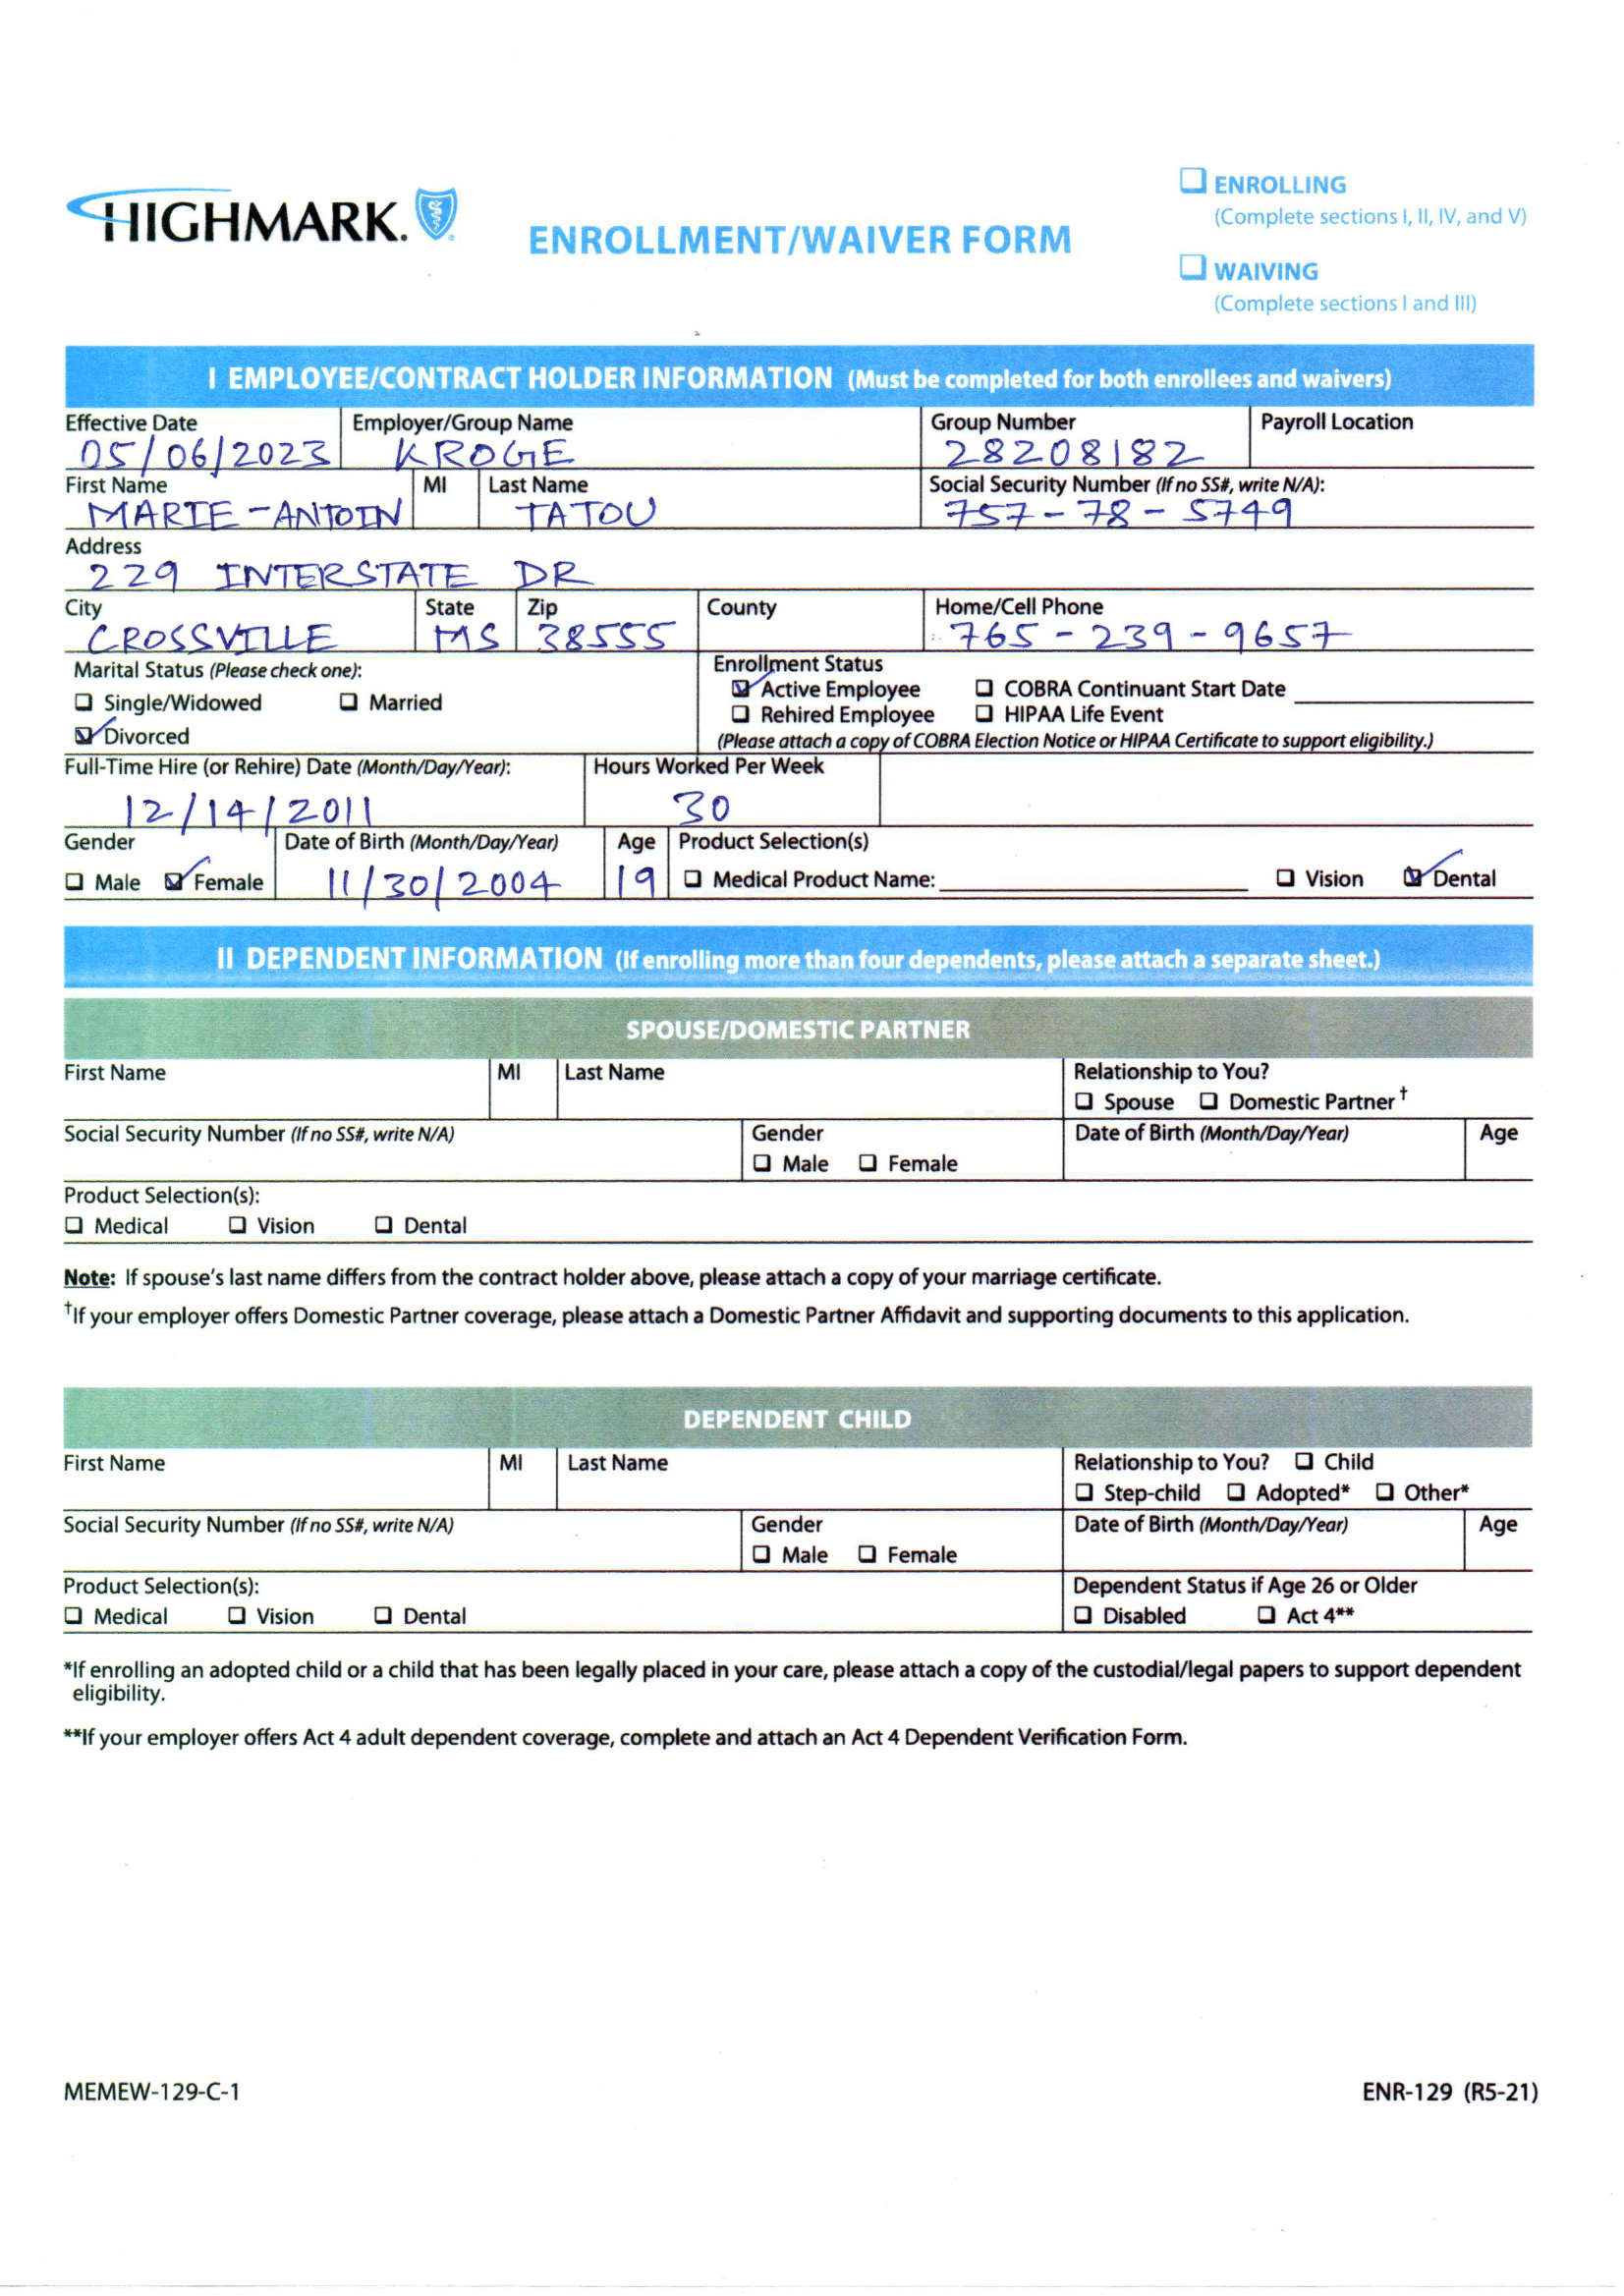 HIGHMARK.
ENROLLMENT/WAIVER FORM
☐ ENROLLING
(Complete sections I, II, IV, and V)
☐ WAIVING
(Complete sections I and III)
I EMPLOYEE/CONTRACT HOLDER INFORMATION (Must be completed for both enrollees and waivers)
Effective Date Employer/Group Name Group Number Payroll Location
05/06/2023 KROGE 28208182
First Name MI Last Name Social Security Number (If no SS#, write N/A):
MARIE-ANTOIN TATOU 757-78-5749
Address
229 INTERSTATE DR
City State Zip County Home/Cell Phone
CROSSVILLE MS 38555 765-239-9657
Marital Status (Please check one): Enrollment Status
☐ Single/Widowed ☐ Married ☑ Active Employee ☐ COBRA Continuant Start Date
☑ Divorced ☐ Rehired Employee ☐ HIPAA Life Event
(Please attach a copy of COBRA Election Notice or HIPAA Certificate to support eligibility.)
Full-Time Hire (or Rehire) Date (Month/Day/Year): Hours Worked Per Week
12/14/2011 30
Gender Date of Birth (Month/Day/Year) Age Product Selection(s)
☐ Male ☑ Female 11/30/2004 19 ☐ Medical Product Name: ☐ Vision ☑ Dental
II DEPENDENT INFORMATION (If enrolling more than four dependents, please attach a separate sheet.)
SPOUSE/DOMESTIC PARTNER
First Name MI Last Name Relationship to You?
☐ Spouse ☐ Domestic Partner†
Social Security Number (If no SS#, write N/A) Gender Date of Birth (Month/Day/Year) Age
☐ Male ☐ Female
Product Selection(s):
☐ Medical ☐ Vision ☐ Dental
Note: If spouse's last name differs from the contract holder above, please attach a copy of your marriage certificate.
†If your employer offers Domestic Partner coverage, please attach a Domestic Partner Affidavit and supporting documents to this application.
DEPENDENT CHILD
First Name MI Last Name Relationship to You? ☐ Child
☐ Step-child ☐ Adopted* ☐ Other*
Social Security Number (If no SS#, write N/A) Gender Date of Birth (Month/Day/Year) Age
☐ Male ☐ Female
Product Selection(s): Dependent Status if Age 26 or Older
☐ Medical ☐ Vision ☐ Dental ☐ Disabled ☐ Act 4**
*If enrolling an adopted child or a child that has been legally placed in your care, please attach a copy of the custodial/legal papers to support dependent
eligibility.
**If your employer offers Act 4 adult dependent coverage, complete and attach an Act 4 Dependent Verification Form.
MEMEW-129-C-1 ENR-129 (R5-21)